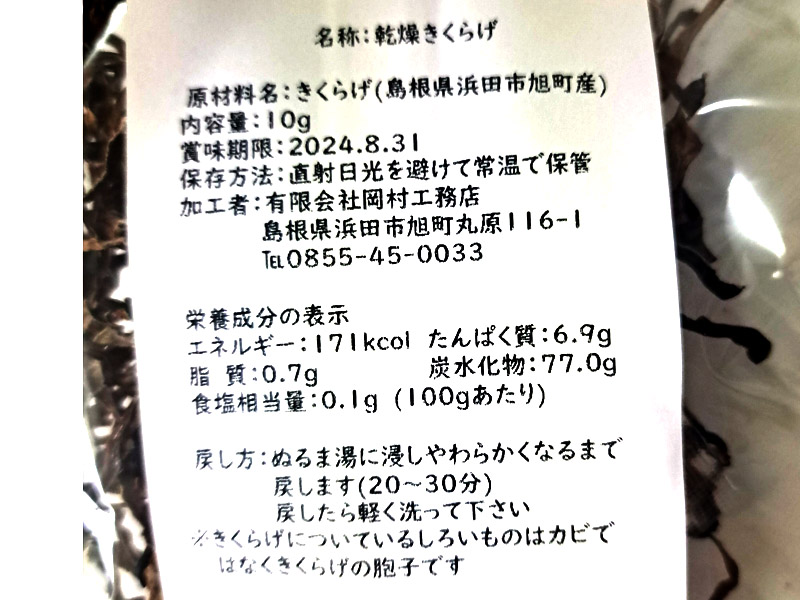 名称：乾燥きくらげ
原材料名：きくらげ(島根県浜田市旭町産)
内容量：10g
賞味期限：2024.8.31
保存方法：直射日光を避けて常温で保管
加工者：有限会社岡村工務店
島根県浜田市旭町丸原116-1
℡0855-45-0033
栄養成分の表示
エネルギー：171kcal たんぱく質：6.9g
脂 質：0.7g 炭水化物：77.0g
食塩相当量：0.1g (100gあたり)
戻し方：ぬるま湯に浸しやわらかくなるまで
戻します(20～30分)
戻したら軽く洗って下さい
※きくらげについているしろいものはカビで
はなくきくらげの胞子です